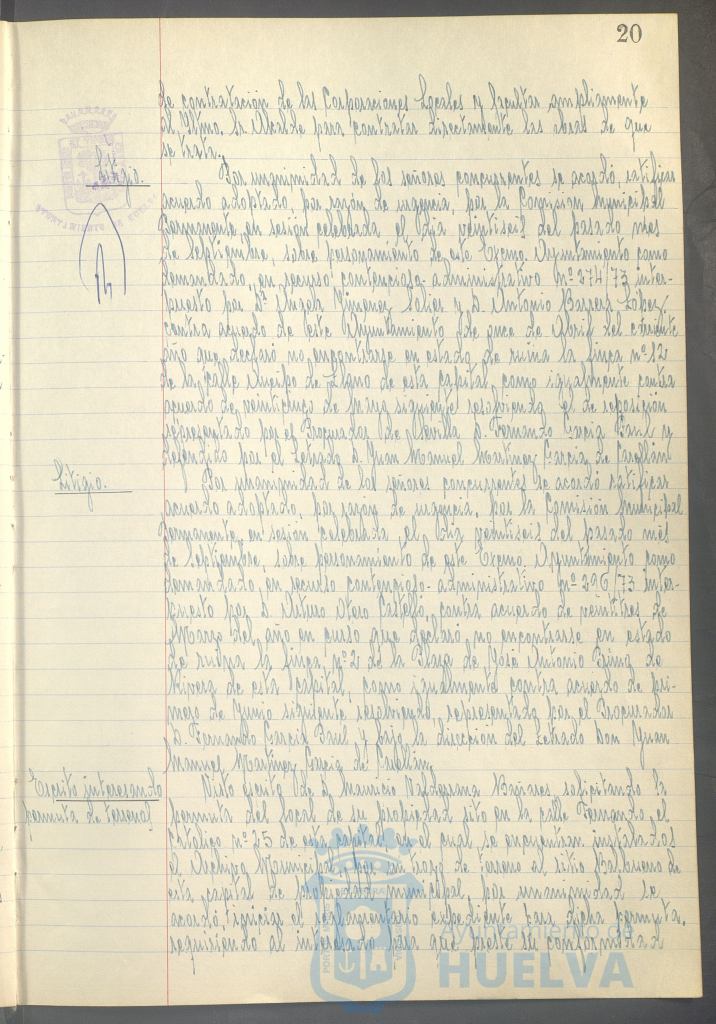 20
de contratación de las Corporaciones Locales y facultar ampliamente
al Iltmo. Sr. Alcalde para contratar directamente las obras de que
se trata.
Litigio.
Por unanimidad de los señores concurrentes se acordó, ratificar
acuerdo adoptado, por razón de urgencia, por la Comisión Municipal
Permanente, en sesión celebrada el día veintiseis del pasado mes
de Septiembre, sobre personamiento de este Excmo. Ayuntamiento como
demandado, en recurso contencioso-administrativo nº 274/73 inter-
puesto por Dª Angela Jimenez Solier y D. Antonio Barrera López,
contra acuerdo de este Ayuntamiento de once de Abril del corriente
año que declaró no encontrarse en estado de ruina la finca nº 12
de la calle de esta capital, como igualmente contra
acuerdo de siguiente resolviendo el de reposición
representado por el Procurador de Sevilla D. Fernando García Paul y
defendido por el Letrado D. Juan Manuel Martínez García de
Litigio.
Por unanimidad de los señores concurrentes se acordó ratificar
acuerdo adoptado, por razón de urgencia, por la Comisión Municipal
Permanente, en sesión celebrada, el día veintiseis del pasado mes
de Septiembre, sobre personamiento de este Excmo. Ayuntamiento como
demandado, en recurso contencioso-administrativo nº 296/73 inter-
puesto por D. Arturo Otero Castelló, contra acuerdo de veintitres de
Marzo del año en curso que declaró no encontrarse en estado
de ruina la finca nº 2 de la Plaza de José Antonio Primo de
Rivera de esta capital, como igualmente contra acuerdo de pri-
mero de Junio siguiente, resolviendo, representado por el Procurador
D. Fernando García Paul y bajo la dirección del Letrado Don Juan
Manuel Martínez García de
Escrito interesando
permuta de terrenos
Visto escrito de D. Mauricio Valdegrana Bañares, solicitando la
permuta del local de su propiedad sito en la calle Fernando el
Católico nº 25 de esta capital en el cual se encuentran instalados
el Archivo Municipal, por un trozo de terreno al sitio Balbueno de
esta capital de propiedad municipal, por unanimidad se
acordó, iniciar el reglamentario expediente para dicha permuta,
requiriendo al interesado para que preste su conformidad
Ayuntamiento de
HUELVA